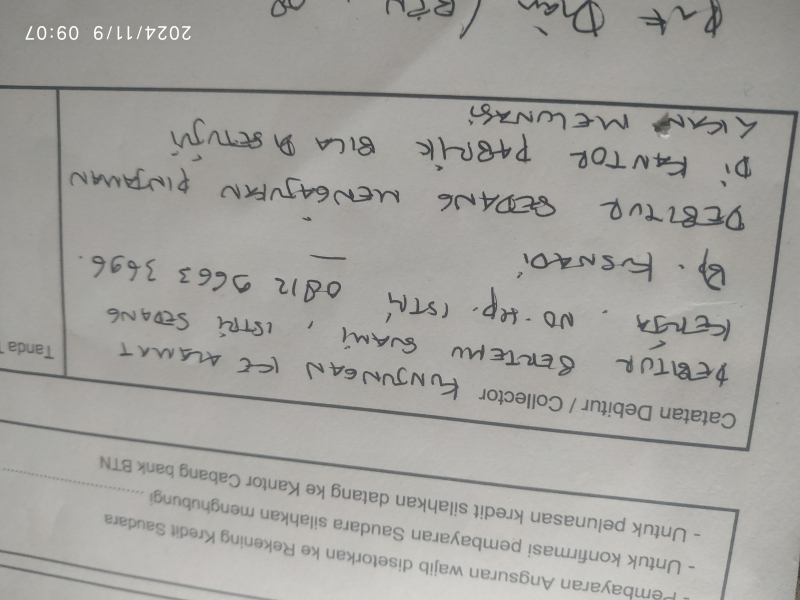 - Pembayaran Angsuran wajib disetorkan ke Rekening Kredit Saudara
- Untuk konfirmasi pembayaran Saudara silahkan menghubungi
- Untuk pelunasan kredit silahkan datang ke Kantor Cabang bank BTN
Catatan Debitur / Collector
Tanda
KUNJUNGAN KE ALAMAT
DEBITUR BERTEMU SUAMI, ISTRI SEDANG
KERJA. NO. tep. ISTRI 0812 9663 3696.
Bp. KUSNADI
DEBITUR SEDANG MENGAJUKAN PINJAMAN
DI KANTOR PABRIK BILA DISETUJUI
AKAN MELUNASI
Dian (BTN
2024/11/9 09:07